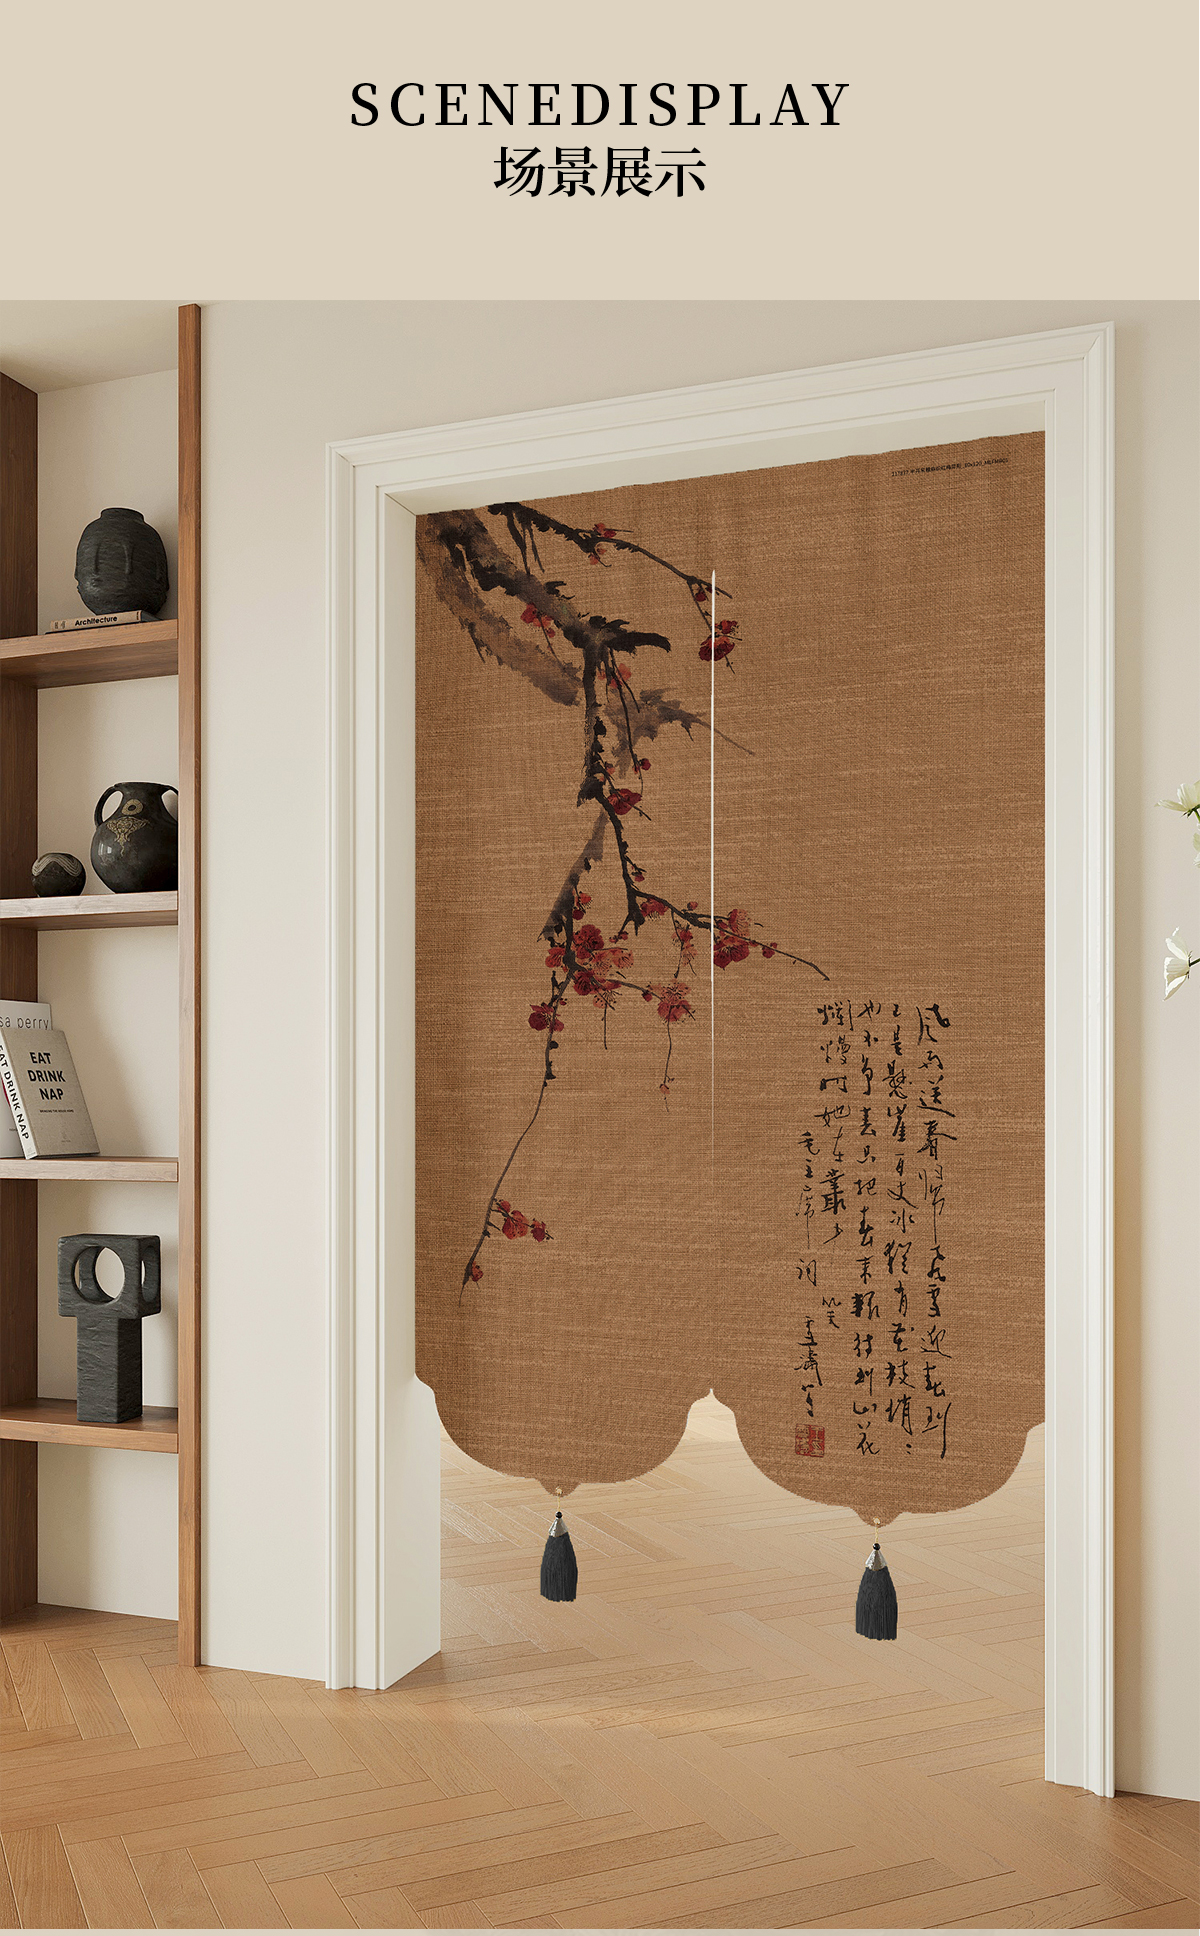 SCENEDISPLAY
场景展示
Architecture
sa perry
EAT DRINK NAP
EAT
DRINK
NAP
风雨送春归飞雪迎春到
已是悬崖百丈冰犹有花枝俏
也不争春只把春来报待到山花
烂熳时她在丛中笑
毛主席词